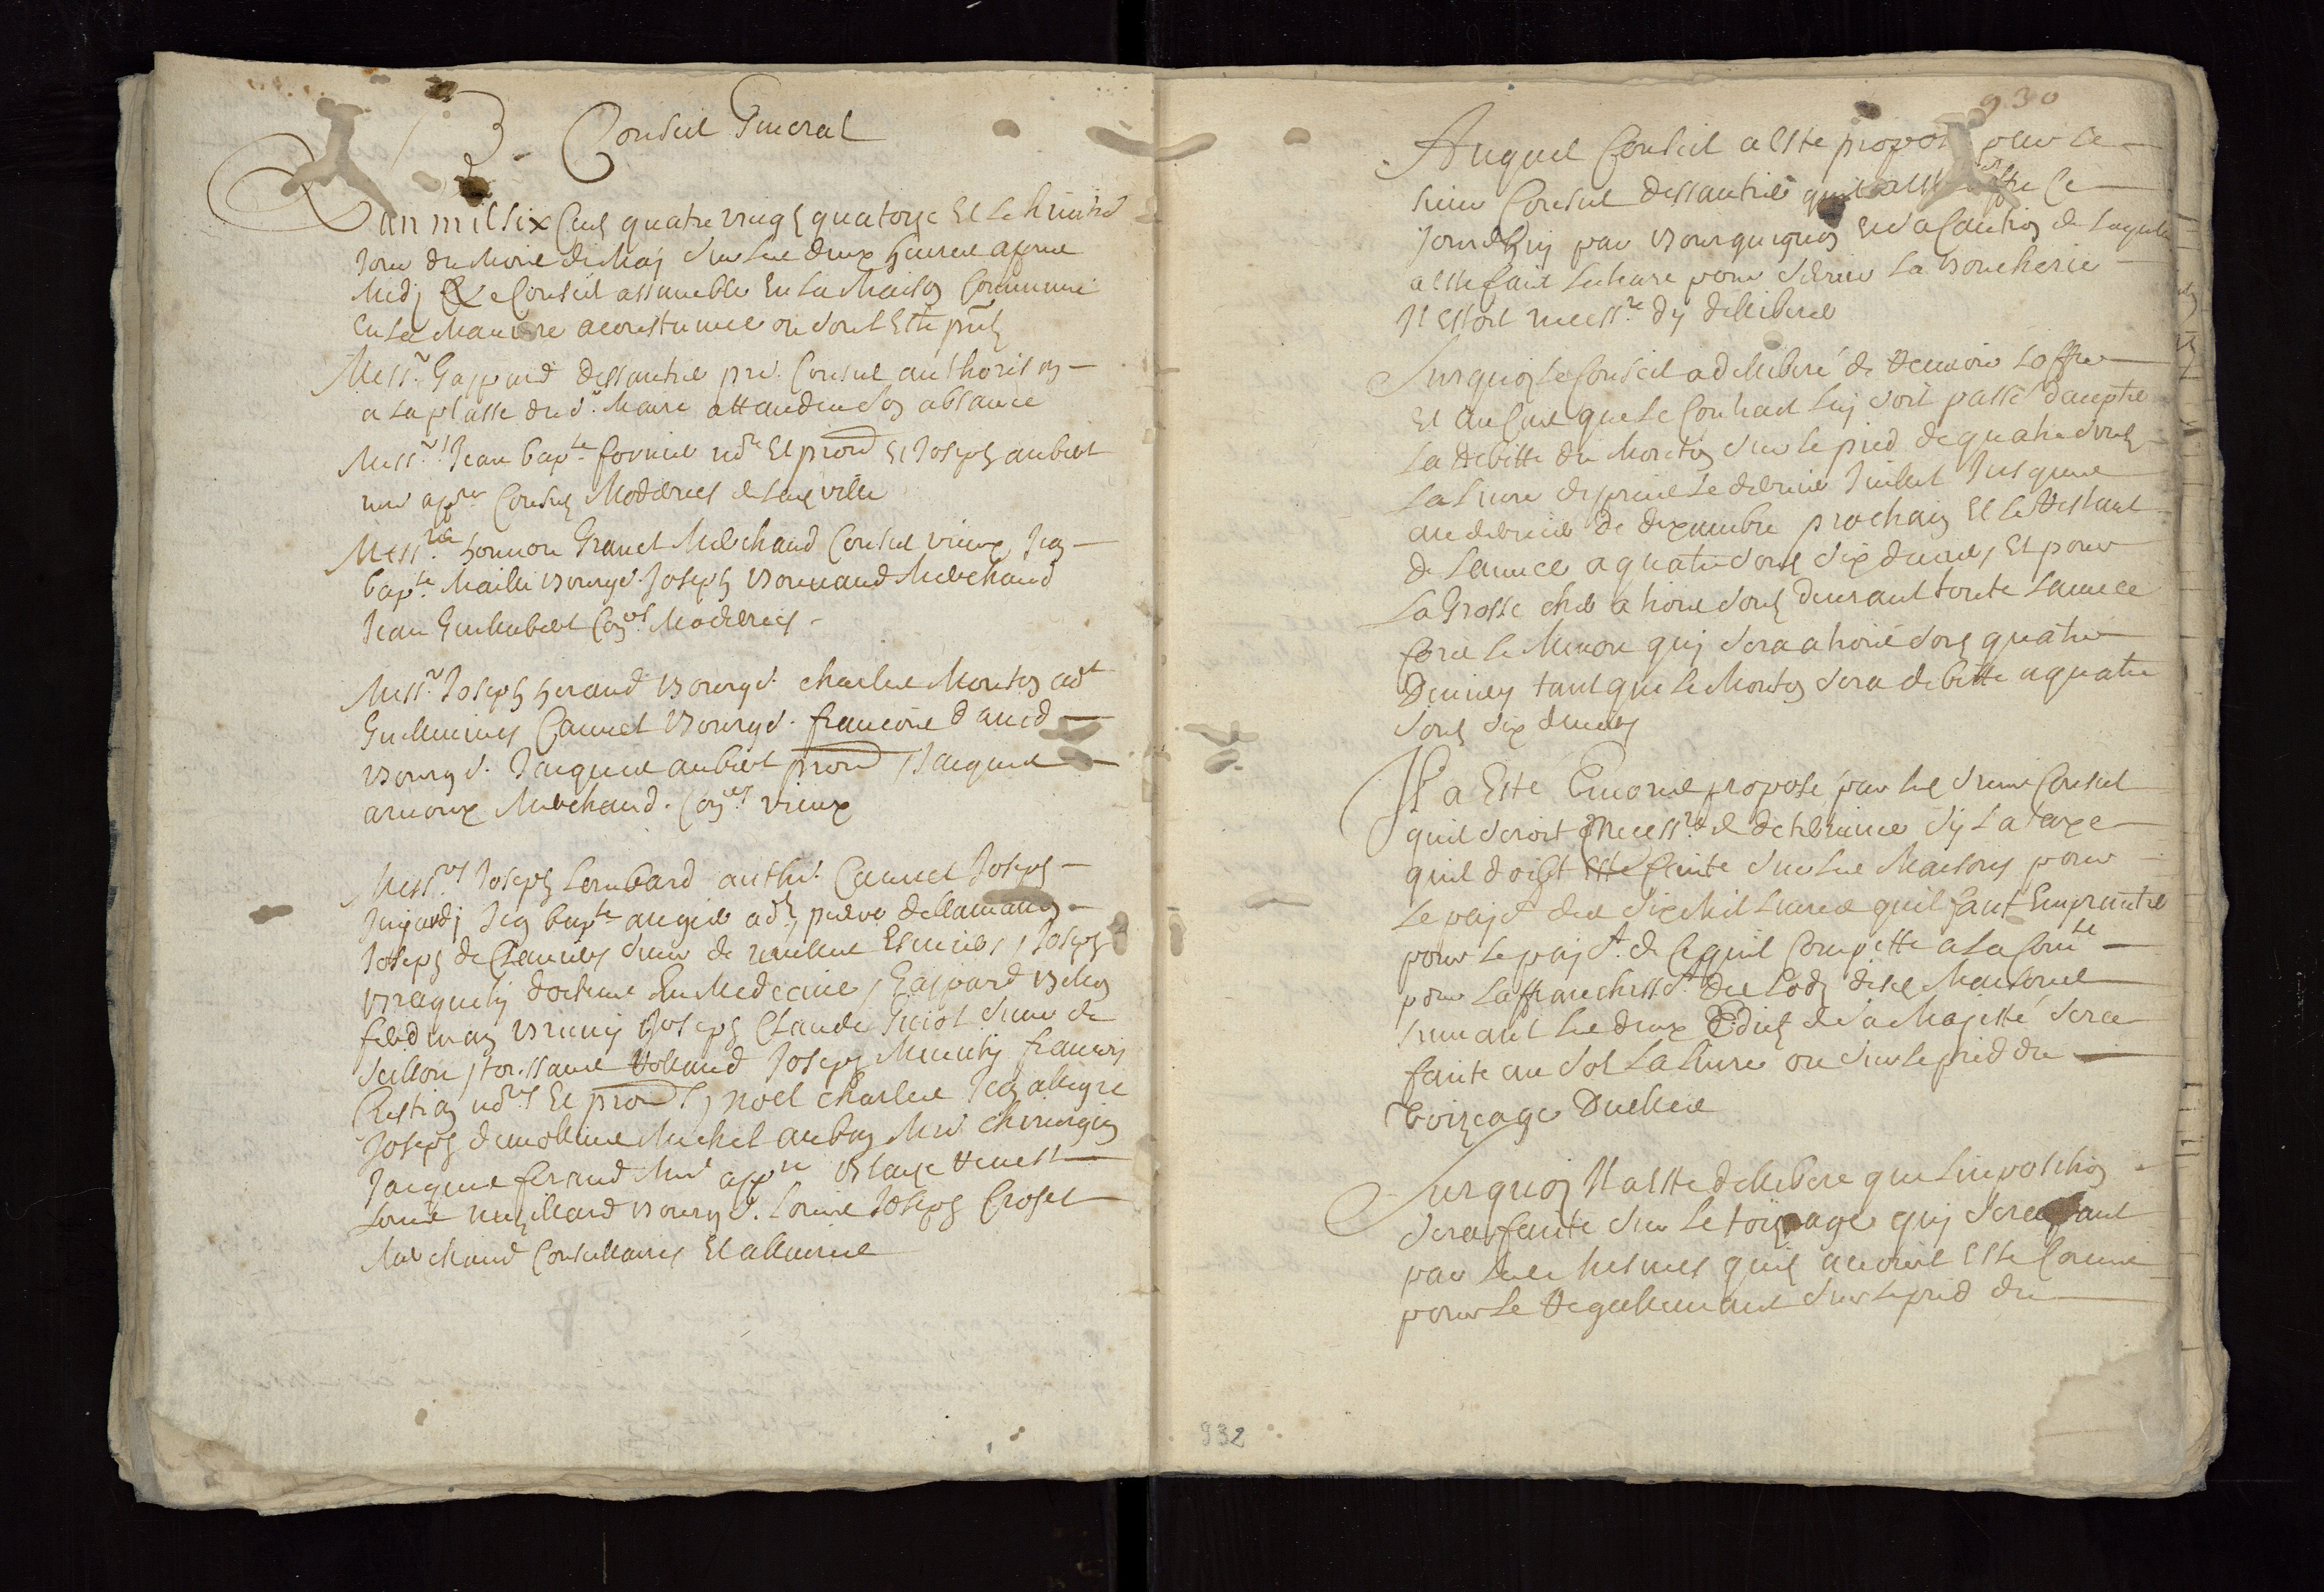 Conseil General
Lan mil six Cens quatre vingts quatorze Et le huitie
Jour du Mois de May sur les deux heures apres
Midy Le Conseil assamblé En La Maison Commune
En La Maniere acoustumee ou sont Esté pnts
Messr. Gaspard dessautres pr. Consul authorisan
a La plasse du sr. Maire attandeu son absance
Messrs Jean bapte. fornier nore Et procr Et Joseph aubert
mre appre Consulz Modernes de Lad ville
Messrs honnore Granet Marchand Consul vieux Jean
bapte. Maille bourgs. Joseph bonnaud Marchand
Jean Guilhibert Coners Modernes
Messrs Joseph heraud bourgs. charles Mouton adt
Guilleaumes Cannet bourgs. francois David
bourgs. Jacques aubert procr Jacques
arnoux Marchand. Coners vieux
Messrs Joseph Lombard authr. Cannet Joseph
Jujardy Jean bapte augier adt, pierre dellamanon
Joseph de Clamens sieur de Esmiers, Joseph
braguety docteur En Medecine, Gaspard belon
ferdinan bruny Joseph Claude Guiot sieur de
vellon, toussans Rolland Joseph Minuty francois
Crestian nores Et procrs, noel charles Jean allegre
Joseph dumollines Michel aubin Mre chirurgien
Jacques feraud Mre appre blaise Renest
Louis bourgs. Louis Joseph Crozet
Marchand Conseillaires Et allivrés
930
Auquel Conseil a esté proposé par le
sieur Consul dessautres quil a esté offre Ce
Jourdhuy par bourguignon Et sa Caution de Laquelle
a esté fait Lecture pour servir La boucherie
Il estoit necessre. dy delliberer
Surquoy Le Conseil a deliberé de Recevoir Loffre
Et au Cas que Le Contract luy soit passé dacepter
La debitte du Mouton sur le pied de quatre souls
La Livre despuis Le dernier Juillet Jusques
au dernier de dexambre prochain Et Le Restant
de Lannee a quatre souls six deniers, Et pour
La Grosse cher a trois souls durant toute Lannee
fors Le Menon quy sera a trois souls quatre
deniers tant que Le Mouton sera debitté a quatre
souls six deniers
Il a Esté Encores proposé par led sieur Consul
quil seroit Necessre de determiner sy La taxe
quil doibt Esté faite sur les Maisons pour
Le payt. des six Mil Livres quil faut Emprunter
pour le payt. de Cequil Compette a La Comte
pour Laffranchisst. des Lodz desd Maisons
suivant les deux Edits de sa Majesté sera
faite au sol La Livre ou sur le pied du
toizeage dicelles
Surquoy Il a esté delliberé que Limposition
sera faite sur Le toizeage quy sera fait
par les Estimes quy auroit Esté Comis
pour Le Regallement sur le pied du
932